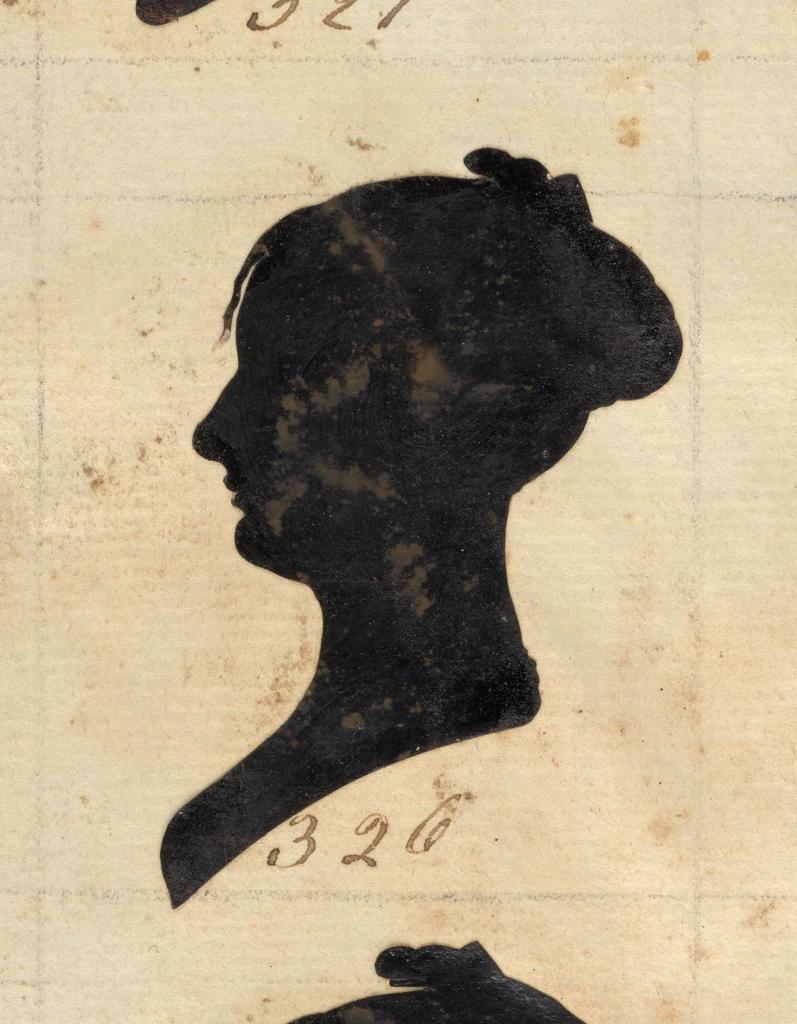 321
326